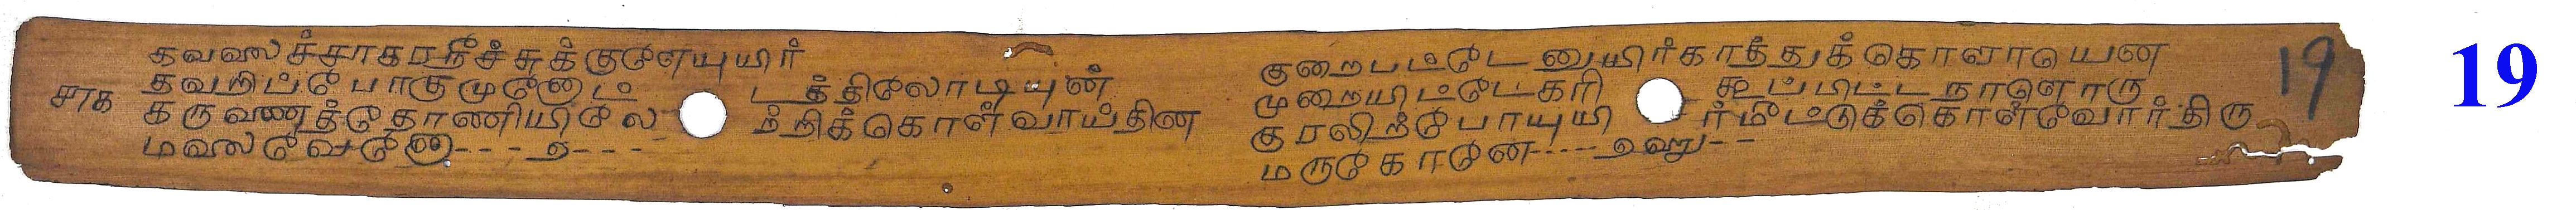 கவலைச்சாகரநீச்சுக்குளேயுயிர்
தவறிப்போகுமுனேட்டத்திலோடியுன்
சாக
கருவணத்தோணியிலேற்றிக்கொள்வாய்தின
மலைவேனே---௭---
குறைபட்டேனுயிர்காத்துக்கொளாயென
முறையிட்டேட்கரி கூப்பிட்டநாளொரு
குரலிற்போயுயிர்மீட்டுக்கொள்வோர்திரு
மருகோனே----
19
19